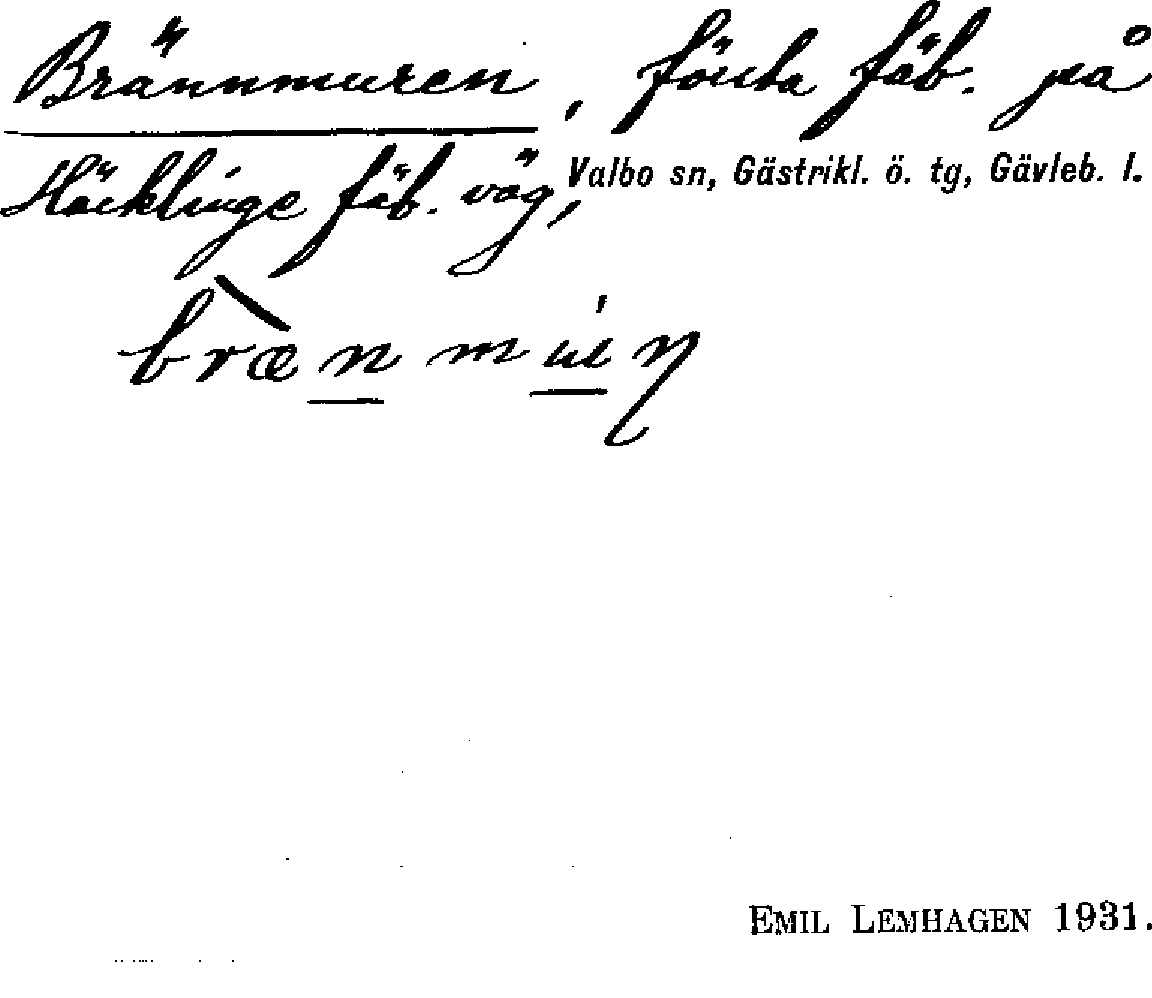 Brännmuren, första fäb. på
Häcklinge fäb. väg,
Valbo sn, Gästrikl. ö. tg, Gävleb. l.
EMIL LEMHAGEN 1931.